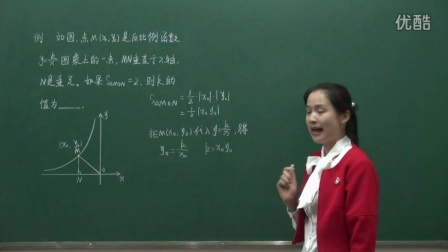 优酷
例 如图,点M(x,y)是反比例函数
y=k/x 图象上的一点,MN垂直于x轴,
N是垂足。如果S△MON=2,则k的
值为____.
S△MON=1/2·|x₀|·|y₀|
=1/2·|x₀y₀|
把M(x₀,y₀)代入y=k/x,得
y₀=k/x₀ k=x₀y₀
(x₀,y₀)
M
y
N
O
x